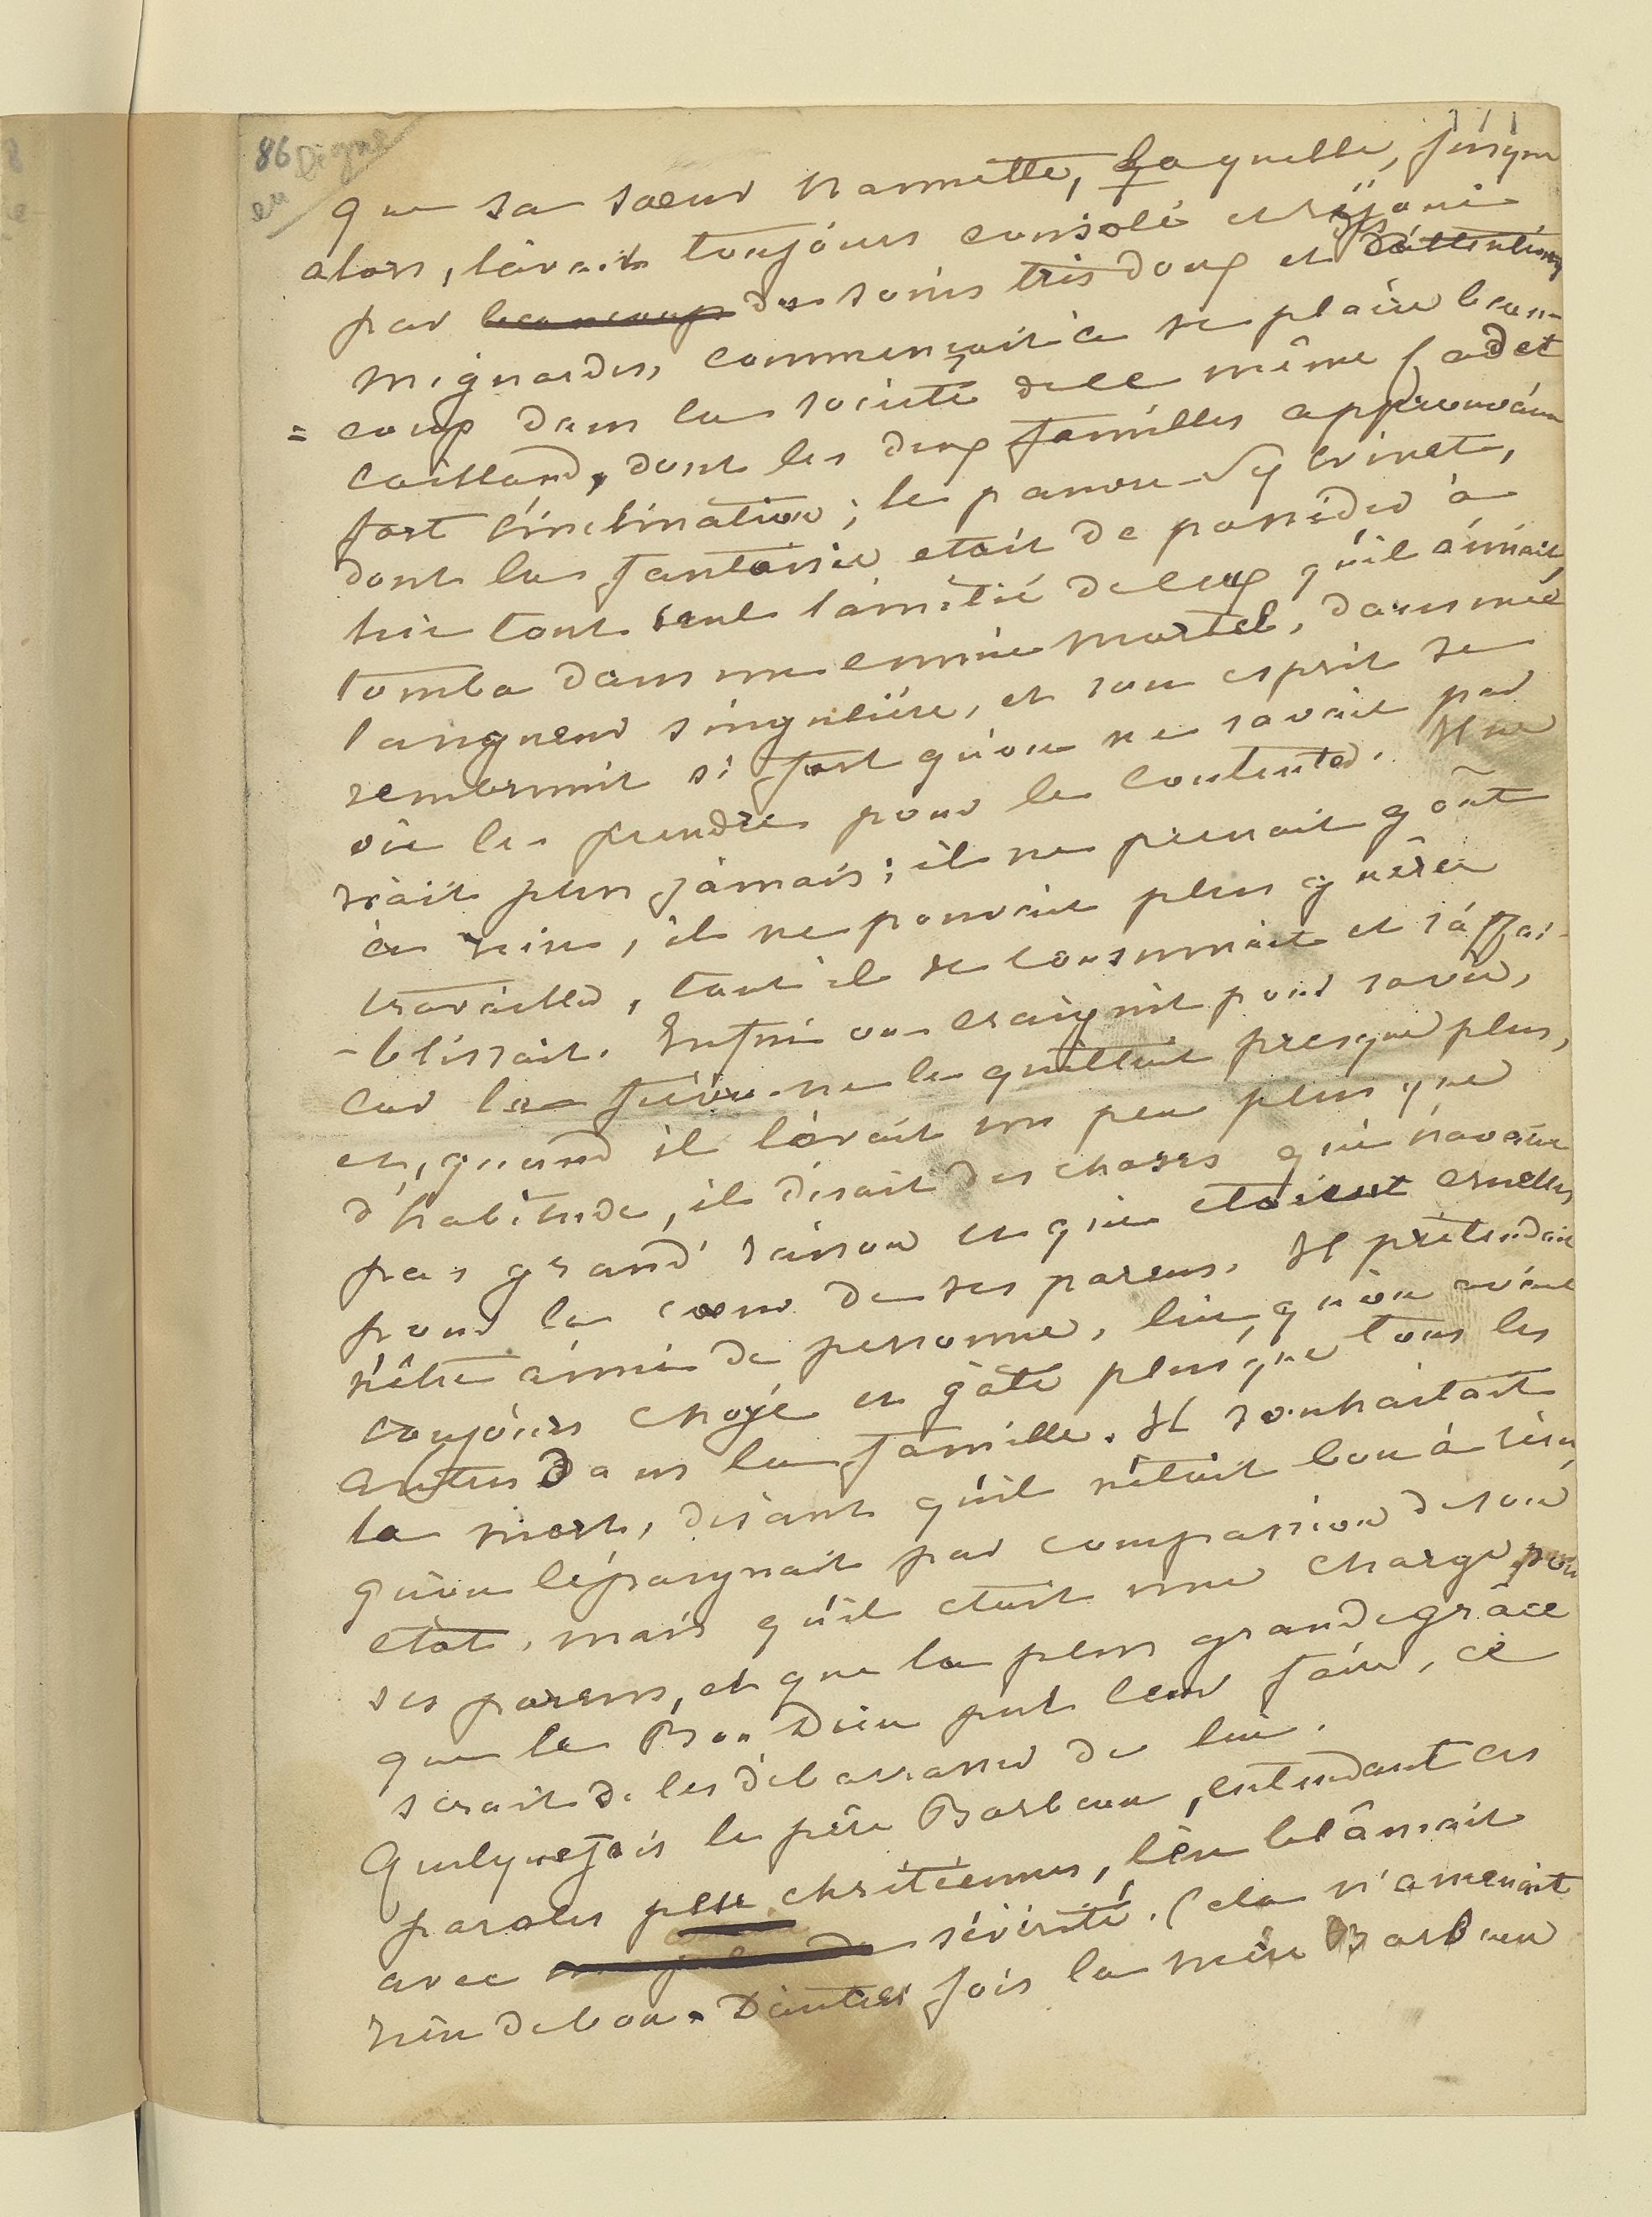 86 Digne
en
que sa sœur Nannette, laquelle, jusque
alors, l'avait toujours consolé et réjoui
par beaucoup des soins très doux et des attentions
mignardes, commençait à se plaire beau-
= coup dans la société de ce même Cadet
Caillaud, dont les deux familles approuvaient
fort l'inclination ; le pauvre Sylvinet,
dont la fantaisie etait de posséder à
lui tout seul l'amitié de ceux qu'il aimait,
tomba dans un ennui mortel, dans une
langueur singulière, et son esprit se
rembrunit si fort qu'on ne savait par
où le prendre pour le contenter. Il ne
riait plus jamais ; il ne prenait goût
à rien, il ne pouvait plus guère
travailler, tant il se consumait et s'affai-
-blissait. Enfin on craignit pour sa vie,
car la fièvre ne le quittait presque plus,
et, quand il l'avait un peu plus que
d'habitude, il disait des choses qui n'avaient
pas grand' raison et qui etaient cruelles
pour le cœur de ses parens. Il prétendait
n'être aimé de personne, lui, qu'on avait
toujours choyé et gâté plus que tous les
autres dans la famille. Il souhaitait
la mort, disant qu'il n'était bon à rien,
qu'on l'épargnait par compassion de son
état, mais qu'il etait une charge pour
ses parens, et que la plus grande grâce
que le Bon Dieu put leur faire, ce
serait de les débarrasser de lui.
Quelquefois le père Barbeau, entendant ces
paroles peu chrétiennes, l'en blâmait
avec sévérité. Cela n'amenait
rien de bon. D'autres fois la mère Barbeau